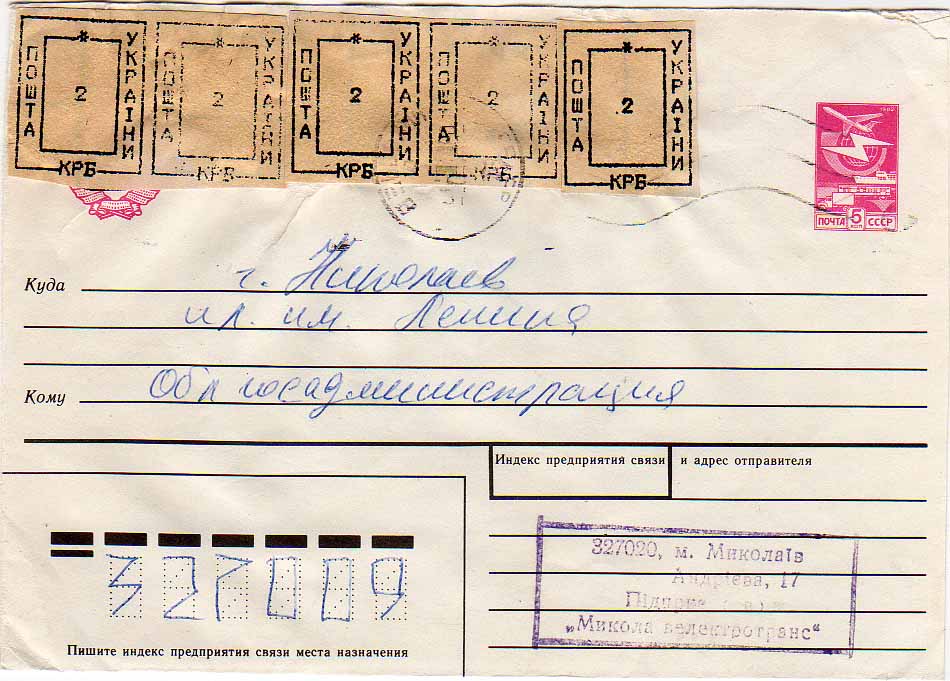 ПОШТА * УКРАЇНИ 2 КРБ
ПОШТА * УКРАЇНИ 2 КРБ
ПОШТА * УКРАЇНИ 2 КРБ
ПОШТА * УКРАЇНИ 2 КРБ
ПОШТА * УКРАЇНИ 2 КРБ
ПОЧТА 5 КОП СССР
Куда г. Николаев
пл. им. Ленина
Кому Облгосадминистрация
Индекс предприятия связи и адрес отправителя
327020, м. Миколаїв
Андрієва, 17
„Микола електротранс“
327009
Пишите индекс предприятия связи места назначения